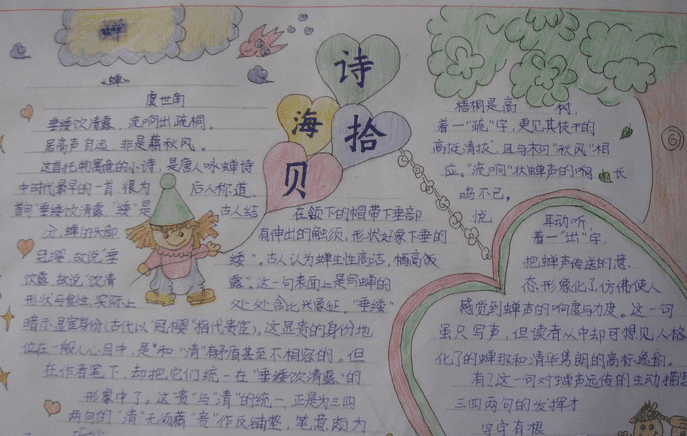 诗
海
拾
贝
蝉
《蝉》
虞世南
垂緌饮清露，流响出疏桐。
居高声自远，非是藉秋风。
这首托物寓意的小诗，是唐人咏蝉诗
中时代最早的一首，很为 后人称道
首句"垂緌饮清露，"緌"是 古人结
在领下的帽带下垂部
分，蝉的头部 有伸出的触须，形状好象下垂的
且 故说"垂 緌"。古人认为蝉生性高洁，栖高饮
饮露，故说"饮清 露"。这一句表面上是写蝉的
形状与食性，实际上 处处含比兴象征。"垂緌"
暗示显宦身份(古代以 冠缨"指代贵宦)。这显贵的身份地
位在一般人心目中，是"和"清"有矛盾甚至不相容的。但
在作者笔下，却把它们统一在"垂緌饮清露"的
形象中了。这"贵"与"清"的统一，正是为三四
两句的"清"无须藉"贵"作反铺垫，笔意颇为
梧桐是高 树，
着一"疏"字，更见其枝干的
高挺清拔，且与末句"秋风"相
应。"流响"状蝉声的 长
鸣不已。
悦 耳动听，
着一"出"字，
把蝉声传送的意
态形象化了，仿佛使人
感觉到蝉声的响度与力度。这一句
虽只写声，但读者从中却可想见人格
化了的蝉那和清华隽朗的高标逸韵。
有了这一句对蝉声远传的生动描
三四两句的发挥才
字字有根